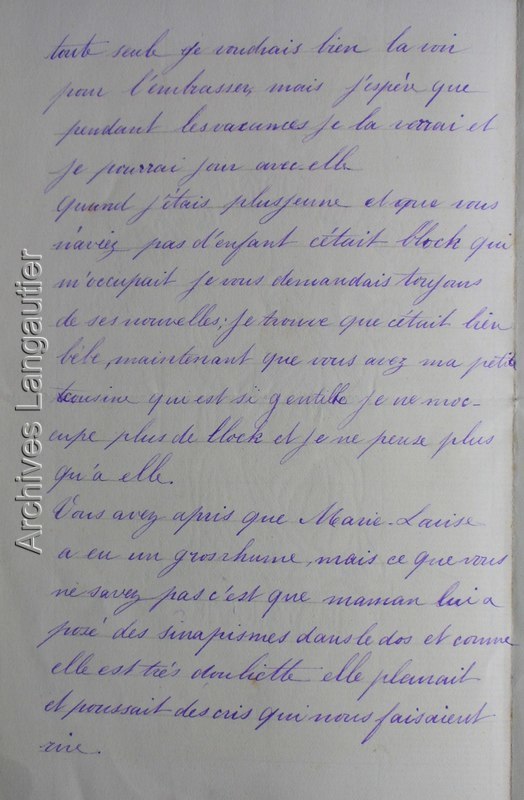 toute seule je voudrais bien la voir
pour l'embrasser, mais j'espère que
pendant les vacances je la verrai et
je pourrai jouer avec elle
Quand j'étais plus jeune et que vous
n'aviez pas d'enfant c'était block qui
m'occupait je vous demandais toujours
de ses nouvelles; je trouve que c'était bien
bête, maintenant que vous avez ma petite
cousine qui est si gentille je ne m'oc-
cupe plus de block et je ne pense plus
qu'a elle.
Vous avez apris que Marie-Louise
a eu un gros rhume, mais ce que vous
ne savez pas c'est que maman lui a
posé des sinapismes dans le dos et comme
elle est très douliette elle pleurait
et poussait des cris qui nous faisaient
rire.
Archives Langautier